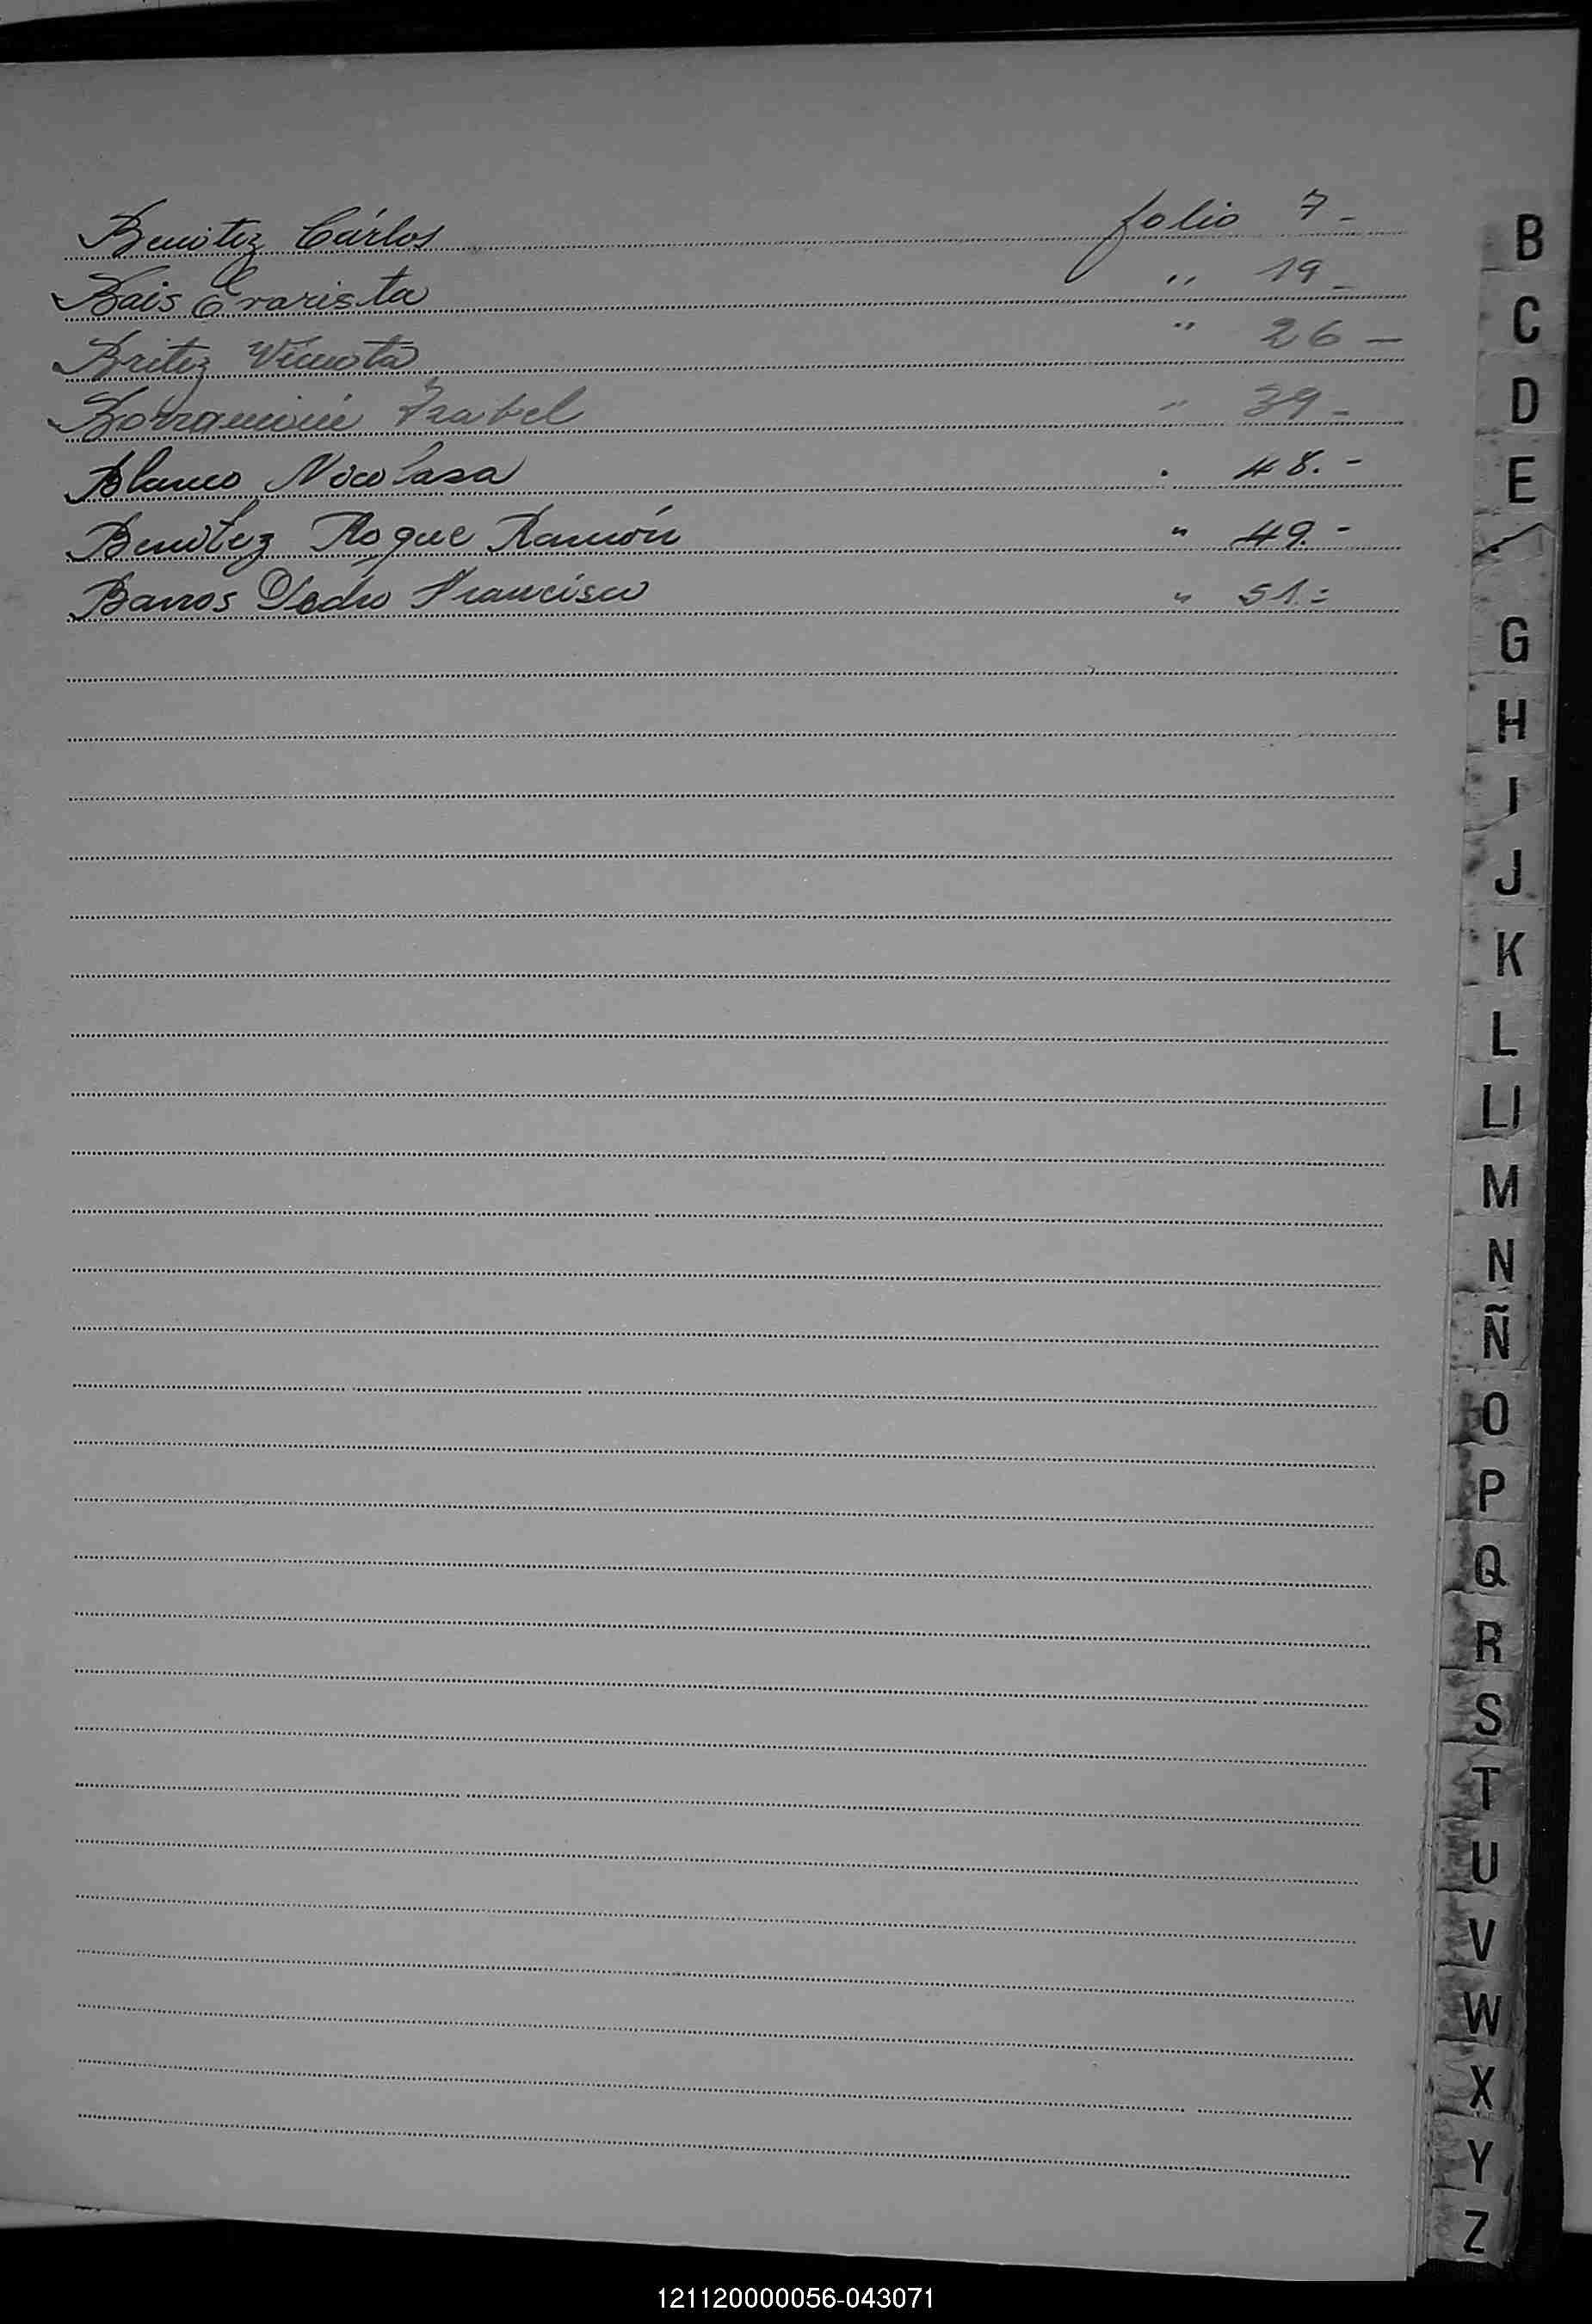 Benitez Cárlos folio 7 -
Bais Evarista " 19 -
Britez " 26 -
Isabel " 39 -
Blanco Nicolasa . 48. -
Benitez Roque Ramón " 49. -
Barros Pedro Francisco " 51. =
B
C
D
E
G
H
I
J
K
L
Ll
M
N
Ñ
O
P
Q
R
S
T
U
V
W
X
Y
Z
121120000056-043071